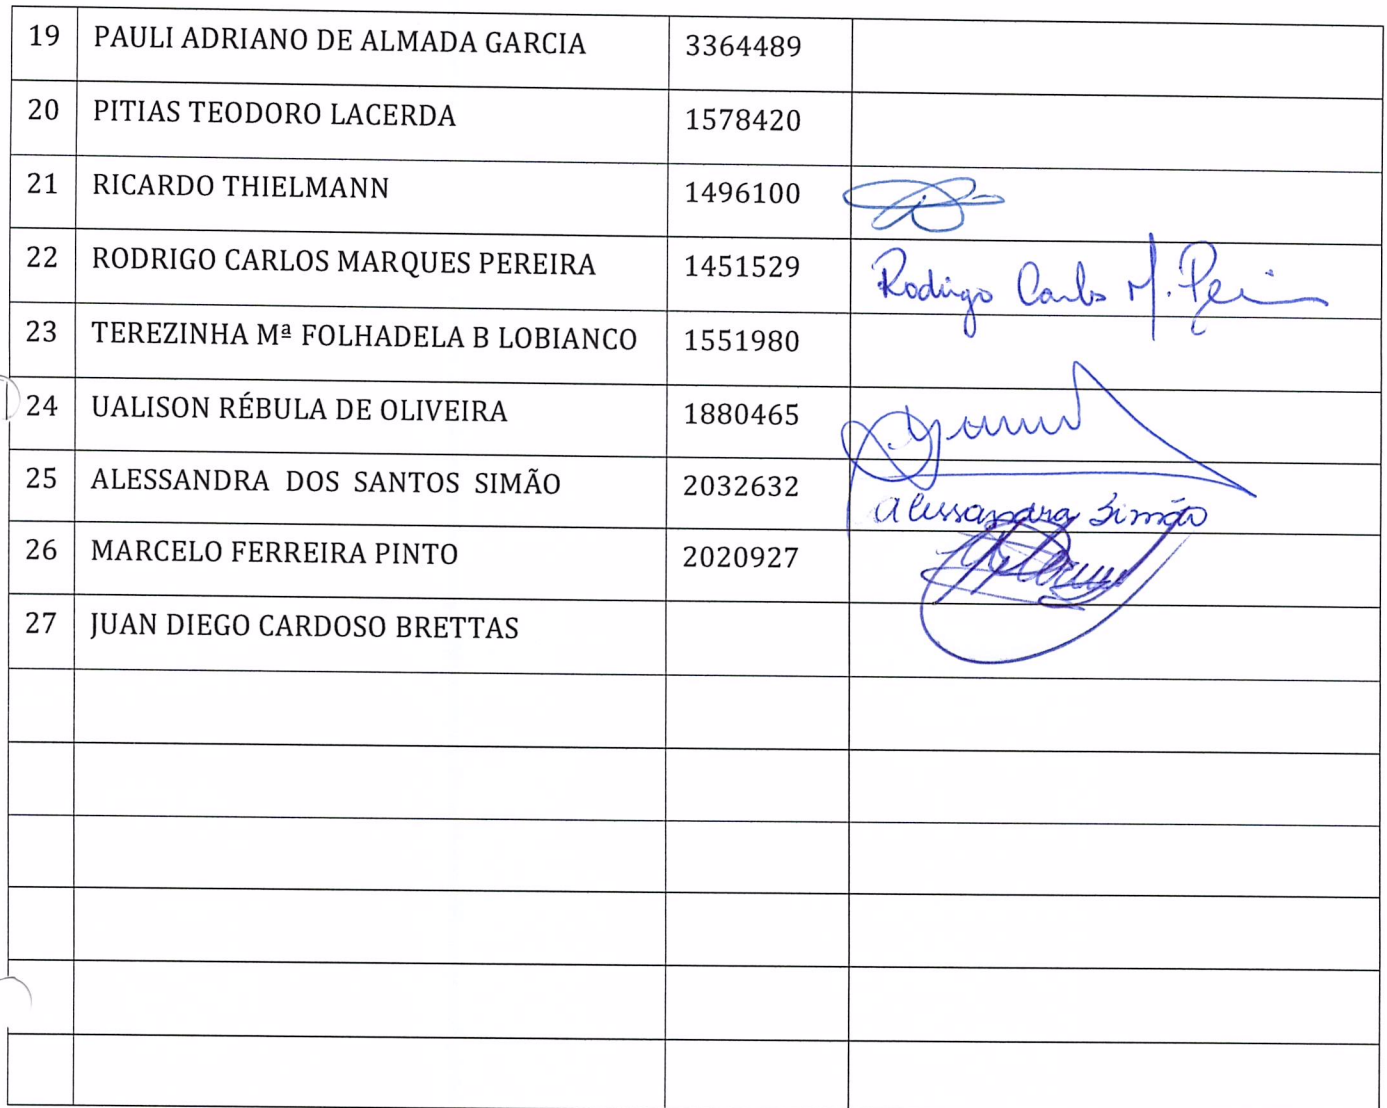 19 PAULI ADRIANO DE ALMADA GARCIA 3364489
20 PITIAS TEODORO LACERDA 1578420
21 RICARDO THIELMANN 1496100
22 RODRIGO CARLOS MARQUES PEREIRA 1451529 Rodrigo Carlos M. Pereira
23 TEREZINHA Mª FOLHADELA B LOBIANCO 1551980
24 UALISON RÉBULA DE OLIVEIRA 1880465
25 ALESSANDRA DOS SANTOS SIMÃO 2032632 Alessandra Simão
26 MARCELO FERREIRA PINTO 2020927
27 JUAN DIEGO CARDOSO BRETTAS